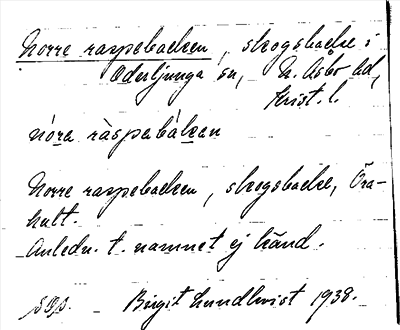 Norre raspebacken, skogsbacke i
Oderljunga sn, N. Åsbo hd,
Krist. l.
nó̱ra ràspabáḵan
Norre raspebacken, skogsbacke, Öra-
hult.
Anledn. t. namnet ej känd.
Birgit Lundkvist 1938.